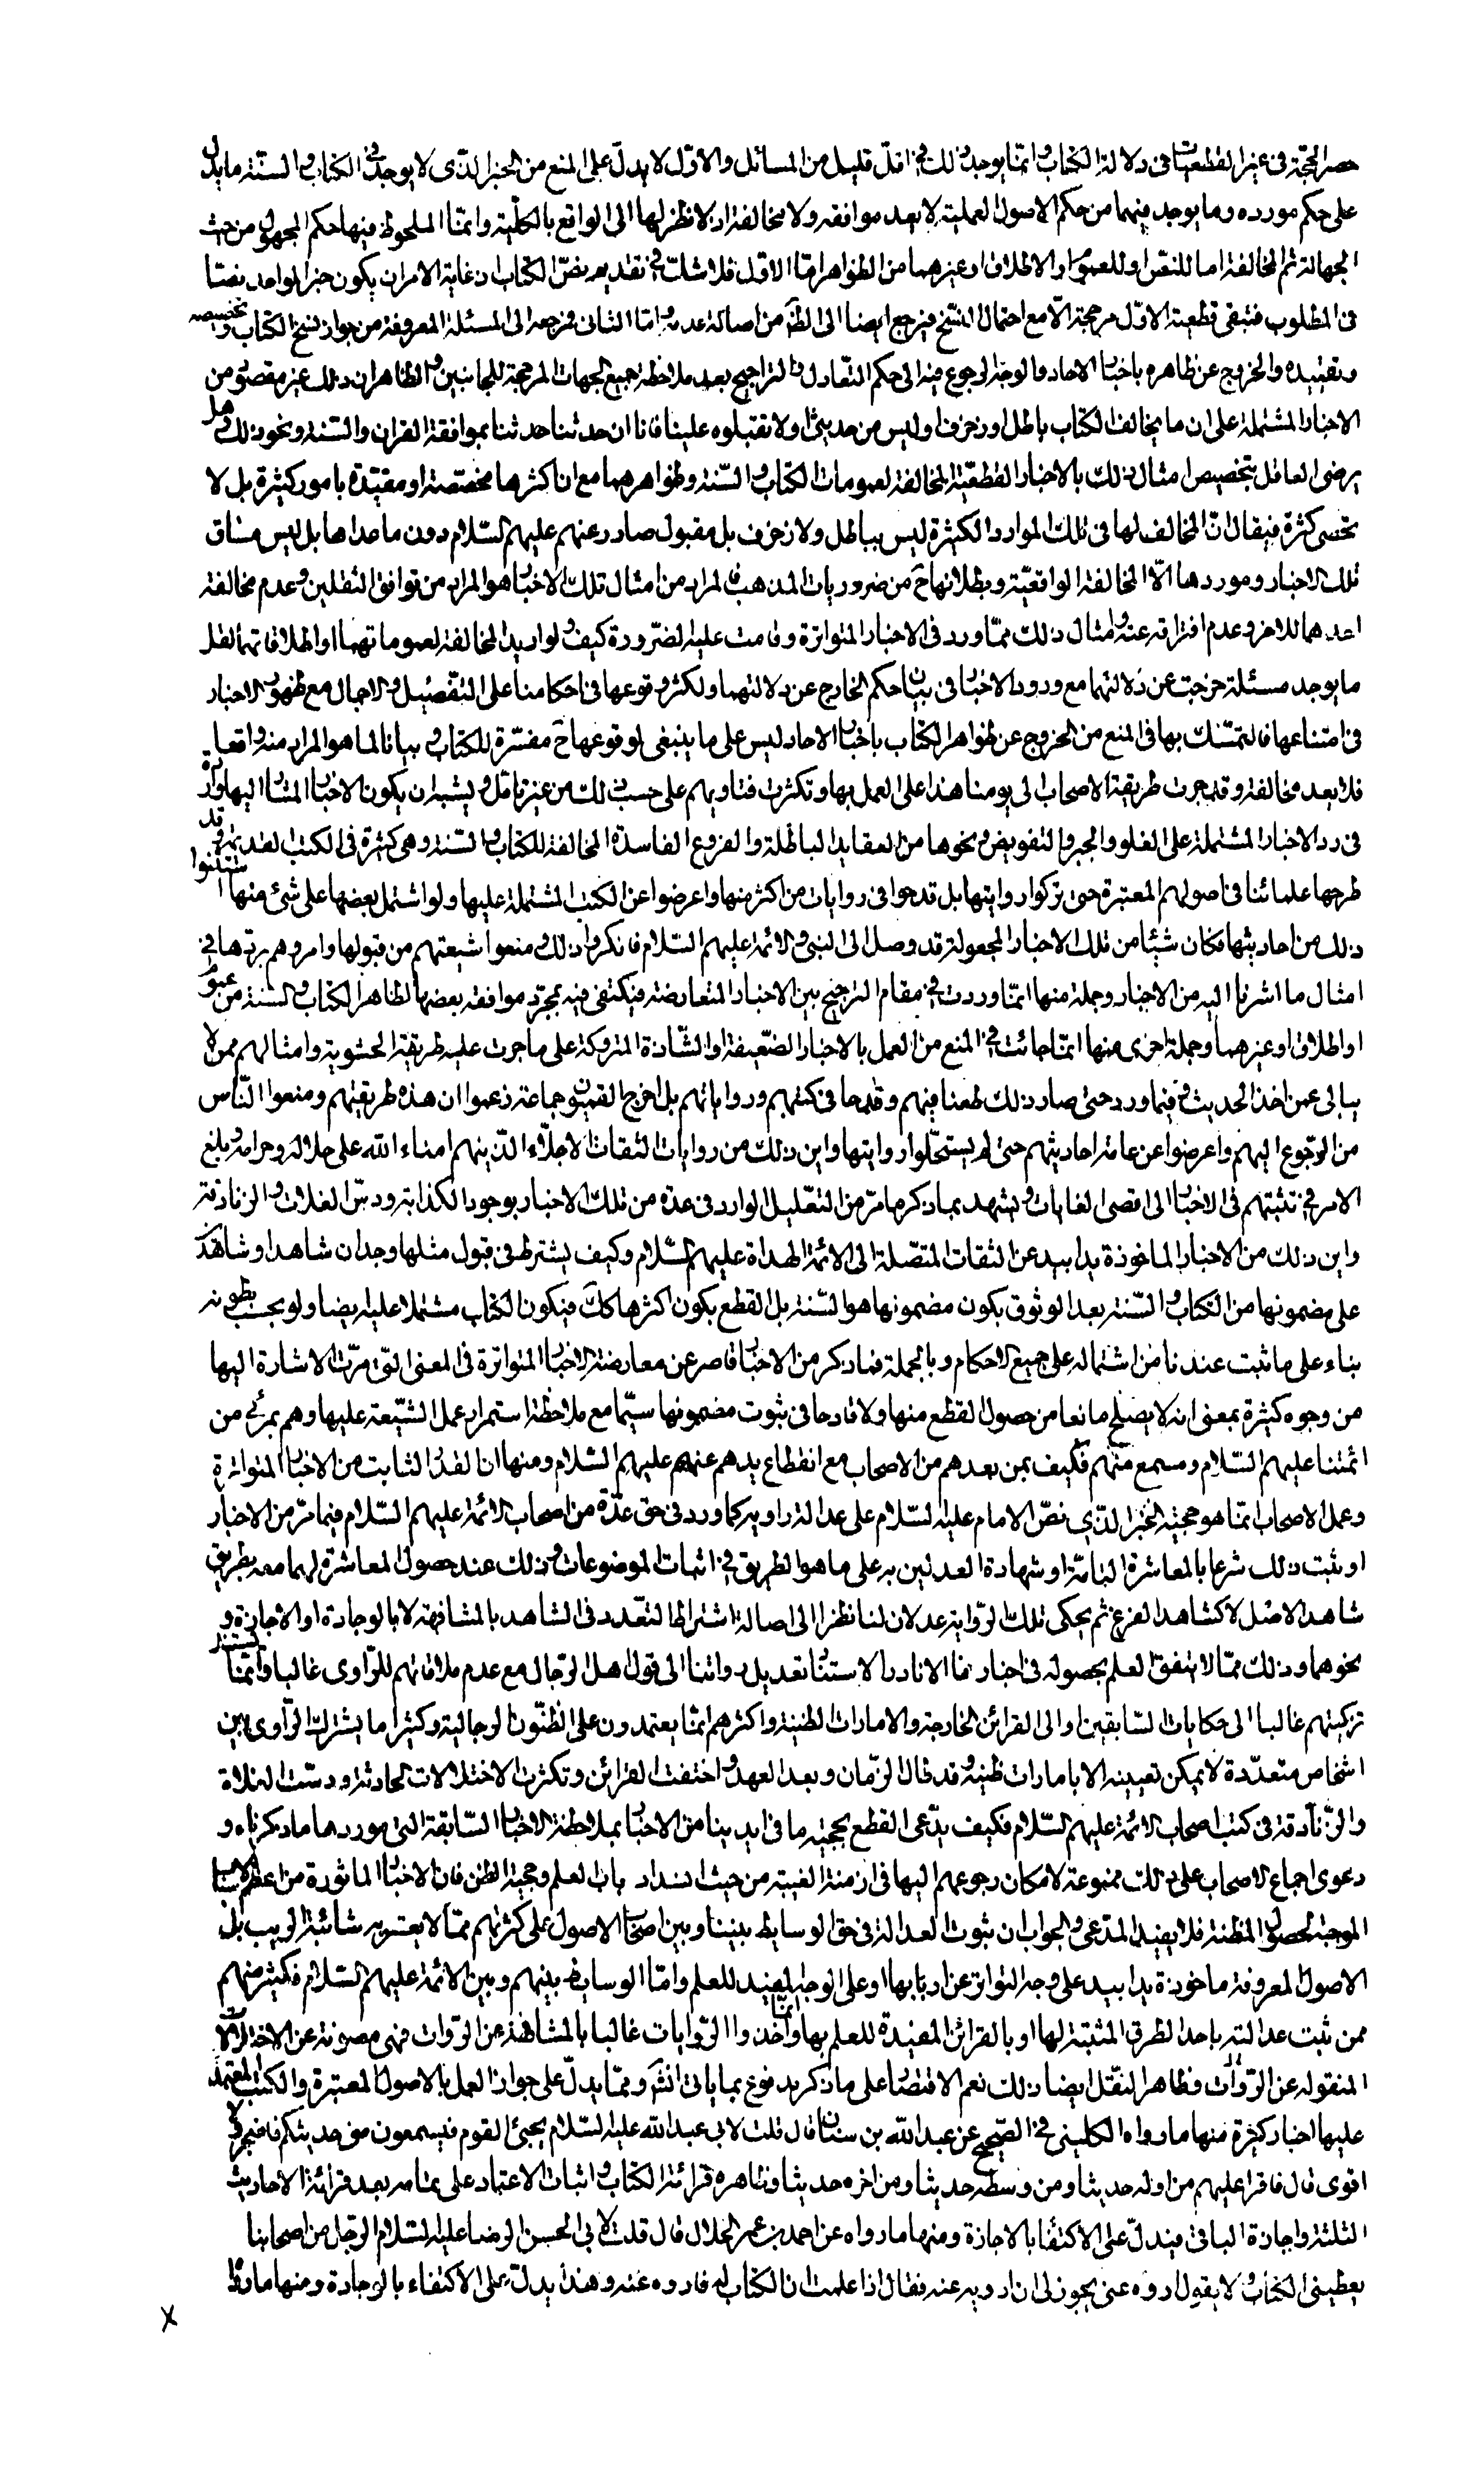 حصر الحجّة فى غير القطعيّات فى دلالة الكتاب وانّما يوجد ذلك فى اقلّ قليل من المسائل والاوّل لا يدلّ على المنع من الخبر الّذى لا يوجد فى الكتاب والسّنّة ما يدل
على حكم مورده وما يوجد فيهما من حكم الاصول العمليّة لا يعد موافقه ولا مخالفة اذ لا نظر لها الى الواقع بالكلّية وانّما الملحوظ فيها حكم المجهول من حيث
الجهالة ثم المخالفة اما للنصّ او للعموم او الاطلاق او غيرهما من الظواهر امّا الاوّل فلا شكّ فى تقديم نصّ الكتاب اذ غاية الامر ان يكون خبر الواحد نصّا
فى المطلوب فتبقى قطعية الاوّل مرجحة الّا مع احتمال النسخ فيرجع ايضا الى الظنّ من اصالة عدمه وامّا الثانى فمرجعه الى المسئلة المعروفة من جواز نسخ الكتاب وتخصيصه
وتقييده والخروج عن ظاهره باخبار الاحاد والوجه الرجوع فيه الى حكم التّعادل والتراجيح بعد ملاحظة جميع الجهات المرجحة للجانبين والظاهر ان ذلك غير مقصود من
الاخبار المشتملة على ان ما يخالف الكتاب باطل او زخرف او ليس من حديثى او لا تقبلوه علينا فانا ان حدثنا حدثنا بموافقة القران والسّنة ونحو ذلك وهل
يرضى العاقل بتخصيص امثال ذلك بالاخبار القطعيّة المخالفة لعمومات الكتاب والسّنة وظواهرهما مع ان اكثرها مخصّصة او مقيّدة بامور كثيرة بل لا
تحصى كثرة فيقال انّ المخالف لها فى تلك الموارد الكثيرة ليس بباطل ولا زخرف بل مقبول صادر عنهم عليهم السّلام دون ما عداها بل ليس مساق
تلك الاخبار وموردها الّا المخالفة الواقعيّة وبطلانها ح من ضروريات المذهب فالمراد من امثال تلك الاخبار هو المراد من توافق الثقلين وعدم مخالفة
احدهما للاخر وعدم افتراقه عنه وامثال ذلك ممّا ورد فى الاخبار المتواترة وقامت عليه الضّرورة كيف ولو اريد المخالفة لعموماتهما او اطلاقاتهما لقل
ما يوجد مسئلة خرجت عن دلالتهما مع ورود الاخبار فى بيان حكم الخارج عن دلالتهما ولكثر وقوعها فى احكامنا على التّفصيل والاجمال مع ظهور الاخبار
فى امتناعها فالتمسّك بها فى المنع من الخروج عن ظواهر الكتاب باخبار الاحاد ليس على ما ينبغى لوقوعها ح مفسّرة للكتاب وبيانا لما هو المراد منه واقعا
فلا يعد مخالفة وقد جرت طريقة الاصحاب الى يومنا هذا على العمل بها وتكثرت فتاويهم على حسب ذلك من غير تامّل ويشبه ان يكون الاخبار المشار اليها واردة
فى رد الاخبار المشتملة على الغلو والجبر والتفويض ونحوها من العقايد الباطلة والفروع الفاسدة المخالفة للكتاب والسّنة وهى كثيرة فى الكتب القديمة وقد
طرحها علمائنا فى اصولهم المعتبرة حتى تركوا روايتها بل قدحوا فى روايات من اكثر منها واعرضوا عن الكتب المشتملة عليها ولو اشتمل بعضها على شئ منها استثنوا
ذلك من احاديثها فكان شيئا من تلك الاخبار المجعولة قد وصل الى النبى والائمة عليهم السّلام فانكروا ذلك ومنعوا شيعتهم من قبولها وامروهم بردّها فى
امثال ما اشرنا اليه من الاخبار وجملة منها انّما وردت فى مقام الترجيح بين الاخبار المتعارضة فيكتفى فيه بمجرّد موافقه بعضها لظاهر الكتاب والسّنة من عموم
او اطلاق او غيرهما وجملة اخرى منها انّما جائت فى المنع من العمل بالاخبار الضّعيفة او الشّاذة المتروكة على ما جرت عليه طريقة الحشوية وامثالهم ممن لا
يبالى عمن اخذ الحديث وفيما ورد حتى صار ذلك طعنا فيهم وقدحا فى كتبهم ورواياتهم بل اخرج القميّون جماعة زعموا ان هذه طريقتهم ومنعوا النّاس
من الرّجوع اليهم واعرضوا عن عامّة احاديثهم حتى لم يستحلّوا روايتها واين ذلك من روايات الثقات الاجلّاء الّذين هم امناء الله على حلاله وحرامه وبلغ
الامر فى تثبتهم فى الاخبار الى اقصى الغايات ويشهد بما ذكر ما مرّ من التعّليل الوارد فى عدة من تلك الاخبار بوجود الكذابة ودسّ الغلات والزنادقة
واين ذلك من الاخبار الماخوذة يدا بيد عن الثقات المتصّلة الى الائمّة الهداة عليهم السّلام وكيف يشترط فى قبول مثلها وجدان شاهد او شاهدين
على مضمونها من الكتاب والسّنة بعد الوثوق بكون مضمونها هو السّنة بل القطع بكون اكثرها كك فيكون الكتاب مشتملا عليه ايضا ولو بحسب بطونه
بناء على ما ثبت عندنا من اشتماله على جميع الاحكام وبالجملة فما ذكر من الاخبار قاصر عن معارضة الاخبار المتواترة فى المعنى الّتى مرّت الاشارة اليها
من وجوه كثيرة بمعنى انه لا يصلح مانعا من حصول القطع منها ولا قادحا فى ثبوت مضمونها سيّما مع ملاحظة استمرار عمل الشّيعة عليها وهم بمرئى من
ائمّتنا عليهم السّلام ومسمع منهم فكيف بمن بعدهم من الاصحاب مع انقطاع يدهم عنهم عليهم السّلام ومنها ان القدر الثابت من الاخبار المتواترة
وعمل الاصحاب انّما هو حجيّة الخبر الّذى نصّ الامام عليه السّلام على عدالة راويه كما ورد فى حق عدّة من اصحاب الائمة عليهم السّلام فيما مرّ من الاخبار
او ثبت ذلك شرعا بالمعاشرة التامّة او شهادة العدلين به على ما هو الطريق فى اثبات الموضوعات وذلك عند حصول المعاشرة لهما معه بطريق
شاهد الاصل لا كشاهد الفرع ثم يحكى تلك الرّواية عدلان لنا نظرا الى اصالة اشتراط التعّدد فى الشاهد بالمشافهة لا بالوجادة او الاجازة و
نحوهما وذلك ممّا لا يتفق العلم بحصوله فى اخبارنا الا نادرا لاستناد تعديل رواتنا الى قول اهل الرّجال مع عدم ملاقاتهم للرّاوى غالبا وانّما يستند
تزكيتهم غالبا الى حكايات السّابقين او الى القرائن الخارجة والامارات الظنية واكثرهم انّما يعتمدون على الظنّون الرّجالية وكثيرا ما يشترك الرّاوى بين
اشخاص متعدّدة لا يمكن تعيينه الا بامارات ظنيّة وقد طال الزّمان وبعد العهد واختفت القرائن وتكثرت الاختلالات الحادثة ودسّت الغلاة
والزّنادقة فى كتب اصحاب الائمة عليهم السّلام فكيف يدّعى القطع بحجيّة ما فى ايدينا من الاخبار بملاحظة الاخبار السّابقة التى موردها ما ذكرناه و
دعوى اجماع الاصحاب على ذلك ممنوعة لامكان رجوعهم اليها فى ازمنة الغيبة من حيث انسداد باب العلم وحجية الظن فان الاخبار الماثورة من اعظم الاسباب
الموجبة لحصول المظنة فلا يفيد المدّعى والجواب ان ثبوت العدالة فى حق الوسايط بيننا وبين اصحاب الاصول على كثرتهم ممّا لا يعتريه شائبة الريب بل
الاصول المعروفة ماخوذة يدا بيد على وجه التواتر عن اربابها او على الوجه المفيد للعلم وامّا الوسايط بينهم وبين الائمة عليهم السّلام فكثير منهم
ممن ثبت عدالته باحد الطرق المثبتة لها او بالقرائن المفيدة للعلم بها وانّما اخذوا الرّوايات غالبا بالمشافهة عن الرّوات فهى مصونة عن الاختلالات
المنقوله عن الرّوات وظاهر النقل ايضا ذلك نعم الاقتصار على ما ذكر يدفع بما ياتى انش وممّا يدلّ على جواز العمل بالاصول المعتبرة والكتب المعتمد
عليها اخبار كثيرة منها ما رواه الكلينى فى الصّحيح عن عبد الله بن سنان قال قلت لابى عبد الله عليه السّلام يجيئ القوم فيسمعون منى حديثكم فاضجر ولا
اقوى قال فاقرا عليهم من اوله حديثا ومن وسطه حديثا ومن اخره حديثا وظاهره قرائة الكتاب واثبات الاعتماد على تمامه بعد قرائة الاحاديث
الثلثة واجازة الباقى فيدلّ على الاكتفا بالاجازة ومنها ما رواه عن احمد بن عمر الحلال قال قلت لابى الحسن الرضا عليه السّلام الرّجل من اصحابنا
يعطينى الكتاب ولا يقول اروه عنى يجوز لى ان ارويه عنه فقال اذا علمت ان الكتاب له فاروه عنه وهذا يدلّ على الاكتفاء بالوجادة ومنها ما رواه